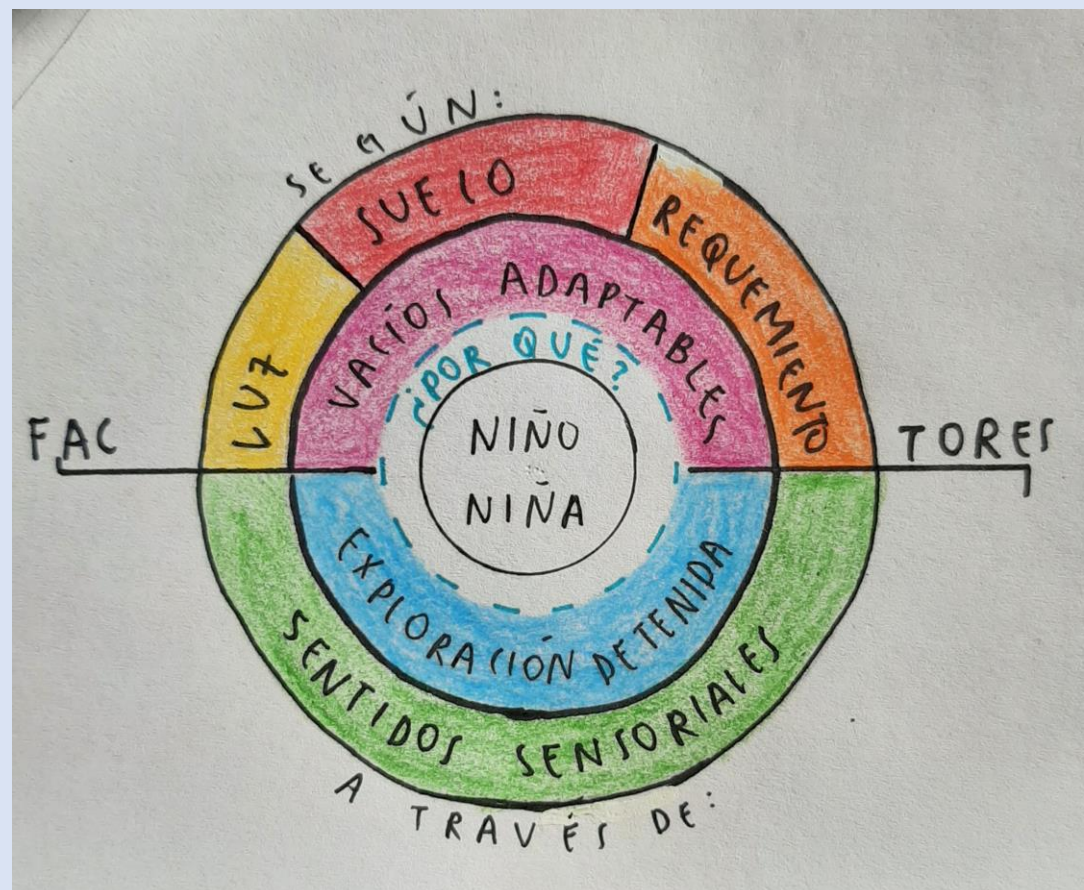 SEGÚN:
SUELO
REQUEMIENTO
LUZ
VACÍOS ADAPTABLES
¿POR QUÉ?
NIÑO
NIÑA
FAC TORES
EXPLORACIÓN DETENIDA
SENTIDOS SENSORIALES
A TRAVÉS DE: